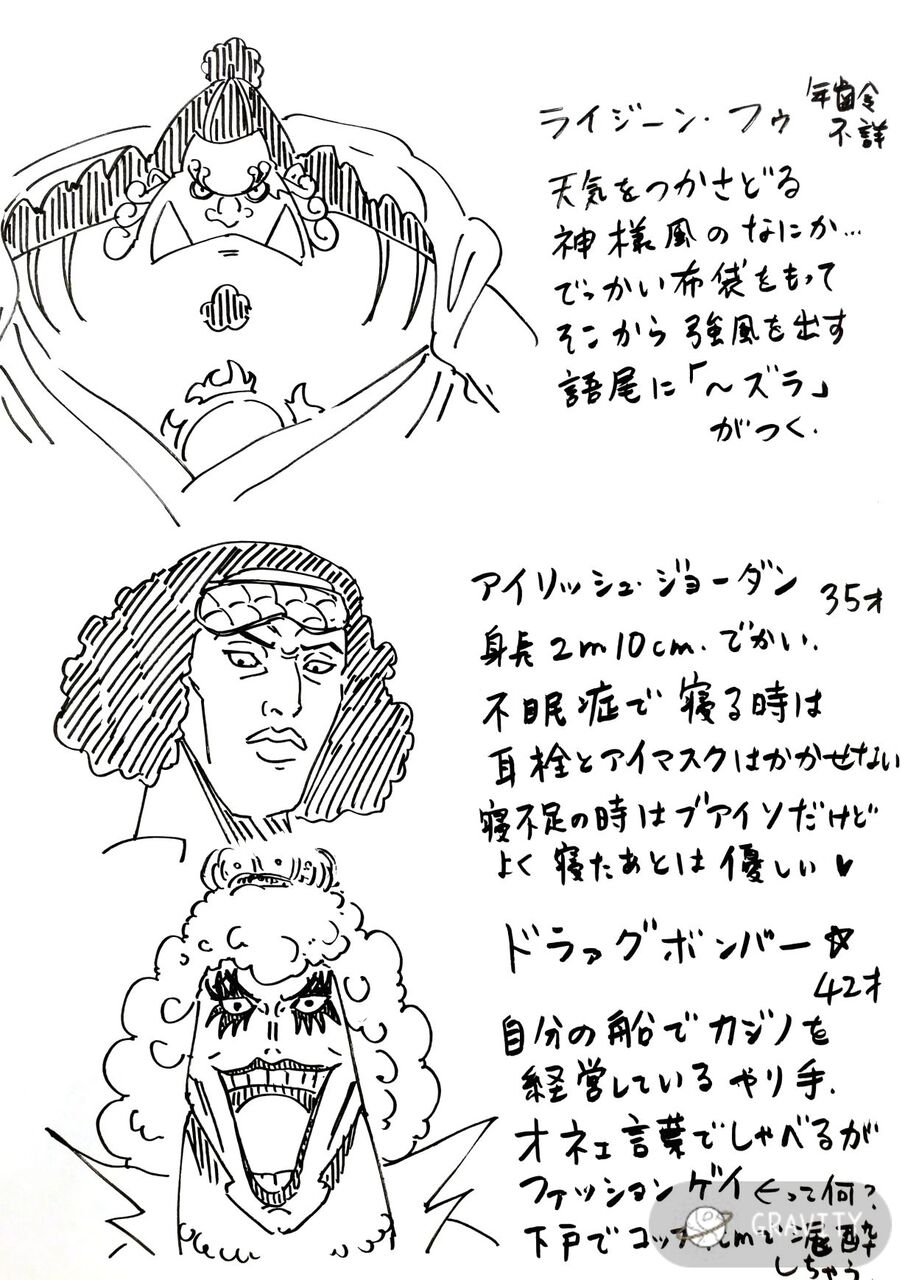 ライジーン・フゥ
年齢
不詳
天気をつかさどる
神様風のなにか…
でっかい布袋をもって
そこから強風を出す
語尾に「〜ズラ」
がつく.
アイリッシュ・ジョーダン
35才
身長2m10cm.でかい.
不眠症で寝る時は
耳栓とアイマスクはかかせない
寝不足の時はブアイソだけど
よく寝たあとは優しい♥
ドラァグボンバー☆
42才
自分の船でカジノを
経営しているやり手.
オネェ言葉でしゃべるが
ファッションゲイ←って何?
下戸でコップ1cmで泥酔
しちゃう
GRAVITY